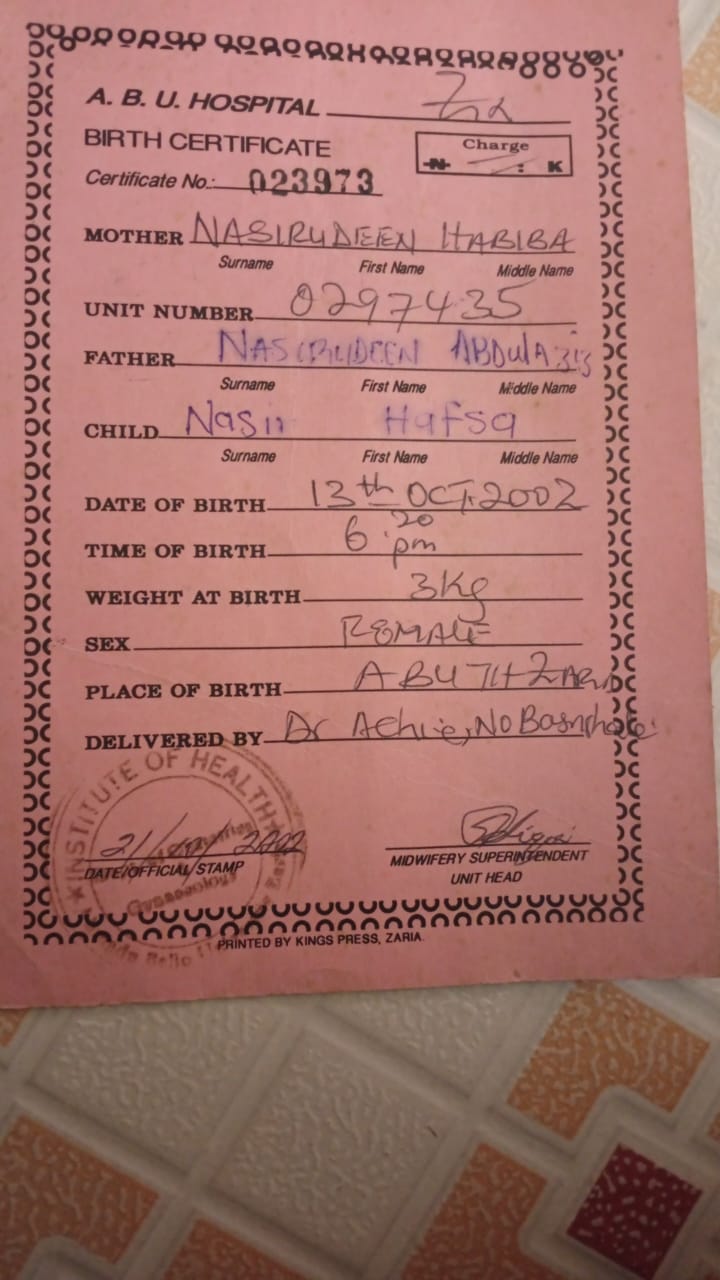 A. B. U. HOSPITAL
BIRTH CERTIFICATE
Charge
N : K
Certificate No.: 023973
MOTHER NASIRUDEEN HABIBA
Surname First Name Middle Name
UNIT NUMBER 0297435
FATHER NASIRUDEEN ABDULAZIZ
Surname First Name Middle Name
CHILD Nasir Hafsa
Surname First Name Middle Name
DATE OF BIRTH 13th OCT. 2002
TIME OF BIRTH 6.20 pm
WEIGHT AT BIRTH 3Kg
SEX FEMALE
PLACE OF BIRTH ABUTH ZARIA
DELIVERED BY Dr Achie,
INSTITUTE OF HEALTH
21/10/2002
DATE/OFFICIAL/STAMP
Gynaecology
MIDWIFERY SUPERINTENDENT
UNIT HEAD
PRINTED BY KINGS PRESS, ZARIA.